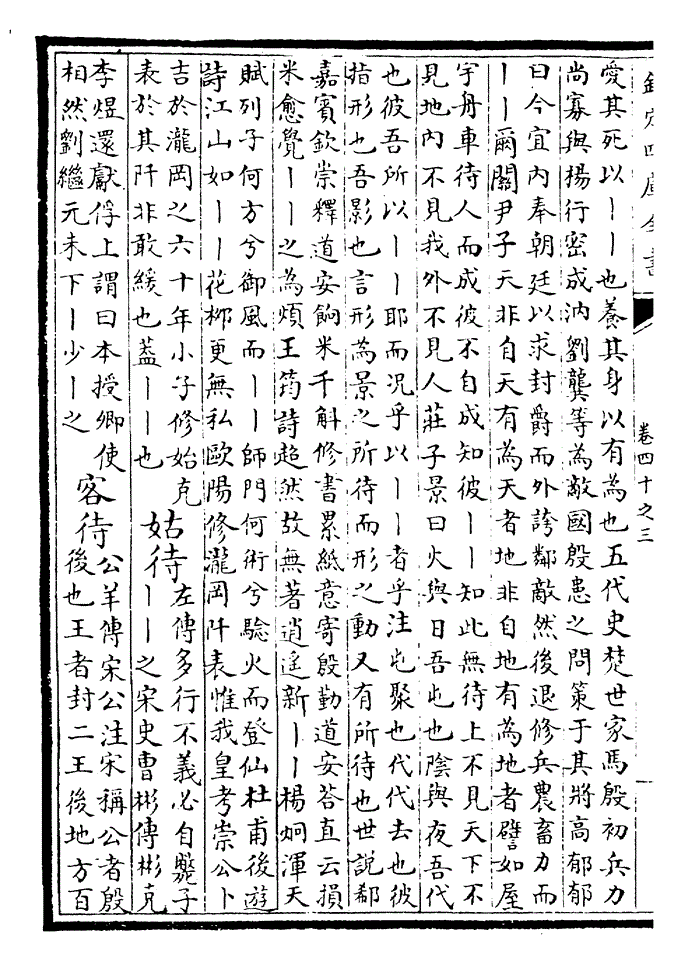 欽定四庫全書
卷四十之三
愛其死以丨丨也養其身以有為也五代史楚世家馬殷初兵力
尚寡與楊行密成汭劉龑等為敵國殷患之問策于其將高郁郁
曰今宜內奉朝廷以求封爵而外誇鄰敵然後退修兵農畜力而
丨丨爾關尹子天非自天有為天者地非自地有為地者譬如屋
宇舟車待人而成彼不自成知彼丨丨知此無待上不見天下不
見地內不見我外不見人莊子景曰火與日吾屯也陰與夜吾代
也彼吾所以丨丨耶而況乎以丨丨者乎注屯聚也代代去也彼
指形也吾影也言形為景之所待而形之動又有所待也世說郗
嘉賓欽崇釋道安餉米千斛修書累紙意寄殷勤道安荅直云損
米愈覺丨丨之為煩王筠詩超然故無著逍遥新丨丨楊炯渾天
賦列子何方兮御風而丨丨師門何術兮驗火而登仙杜甫後遊
詩江山如丨丨花柳更無私歐陽修瀧岡阡表惟我皇考崇公卜
吉於瀧岡之六十年小子修始克
表於其阡非敢緩也葢丨丨也
姑待
左傳多行不義必自斃子
丨丨之宋史曹彬傳彬克
李煜還獻俘上謂曰本授卿使
相然劉繼元未下丨少丨之
客待
公羊傳宋公注宋稱公者殷
後也王者封二王後地方百